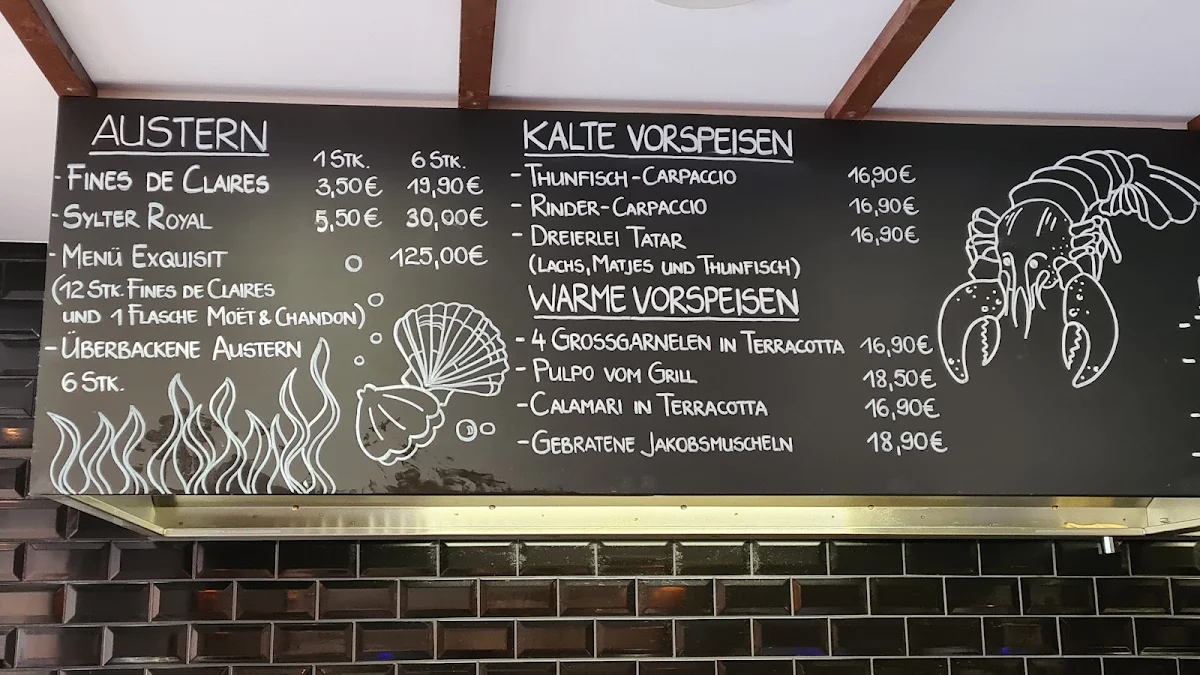 AUSTERN
1 STK. 6 STK.
- FINES DE CLAIRES 3,50€ 19,90€
- SYLTER ROYAL 5,50€ 30,00€
- MENÜ EXQUISIT 125,00€
(12 STK. FINES DE CLAIRES
UND 1 FLASCHE MOËT & CHANDON)
- ÜBERBACKENE AUSTERN
6 STK.
KALTE VORSPEISEN
- THUNFISCH-CARPACCIO 16,90€
- RINDER-CARPACCIO 16,90€
- DREIERLEI TATAR 16,90€
(LACHS, MATJES UND THUNFISCH)
WARME VORSPEISEN
- 4 GROSSGARNELEN IN TERRACOTTA 16,90€
- PULPO VOM GRILL 18,50€
- CALAMARI IN TERRACOTTA 16,90€
- GEBRATENE JAKOBSMUSCHELN 18,90€